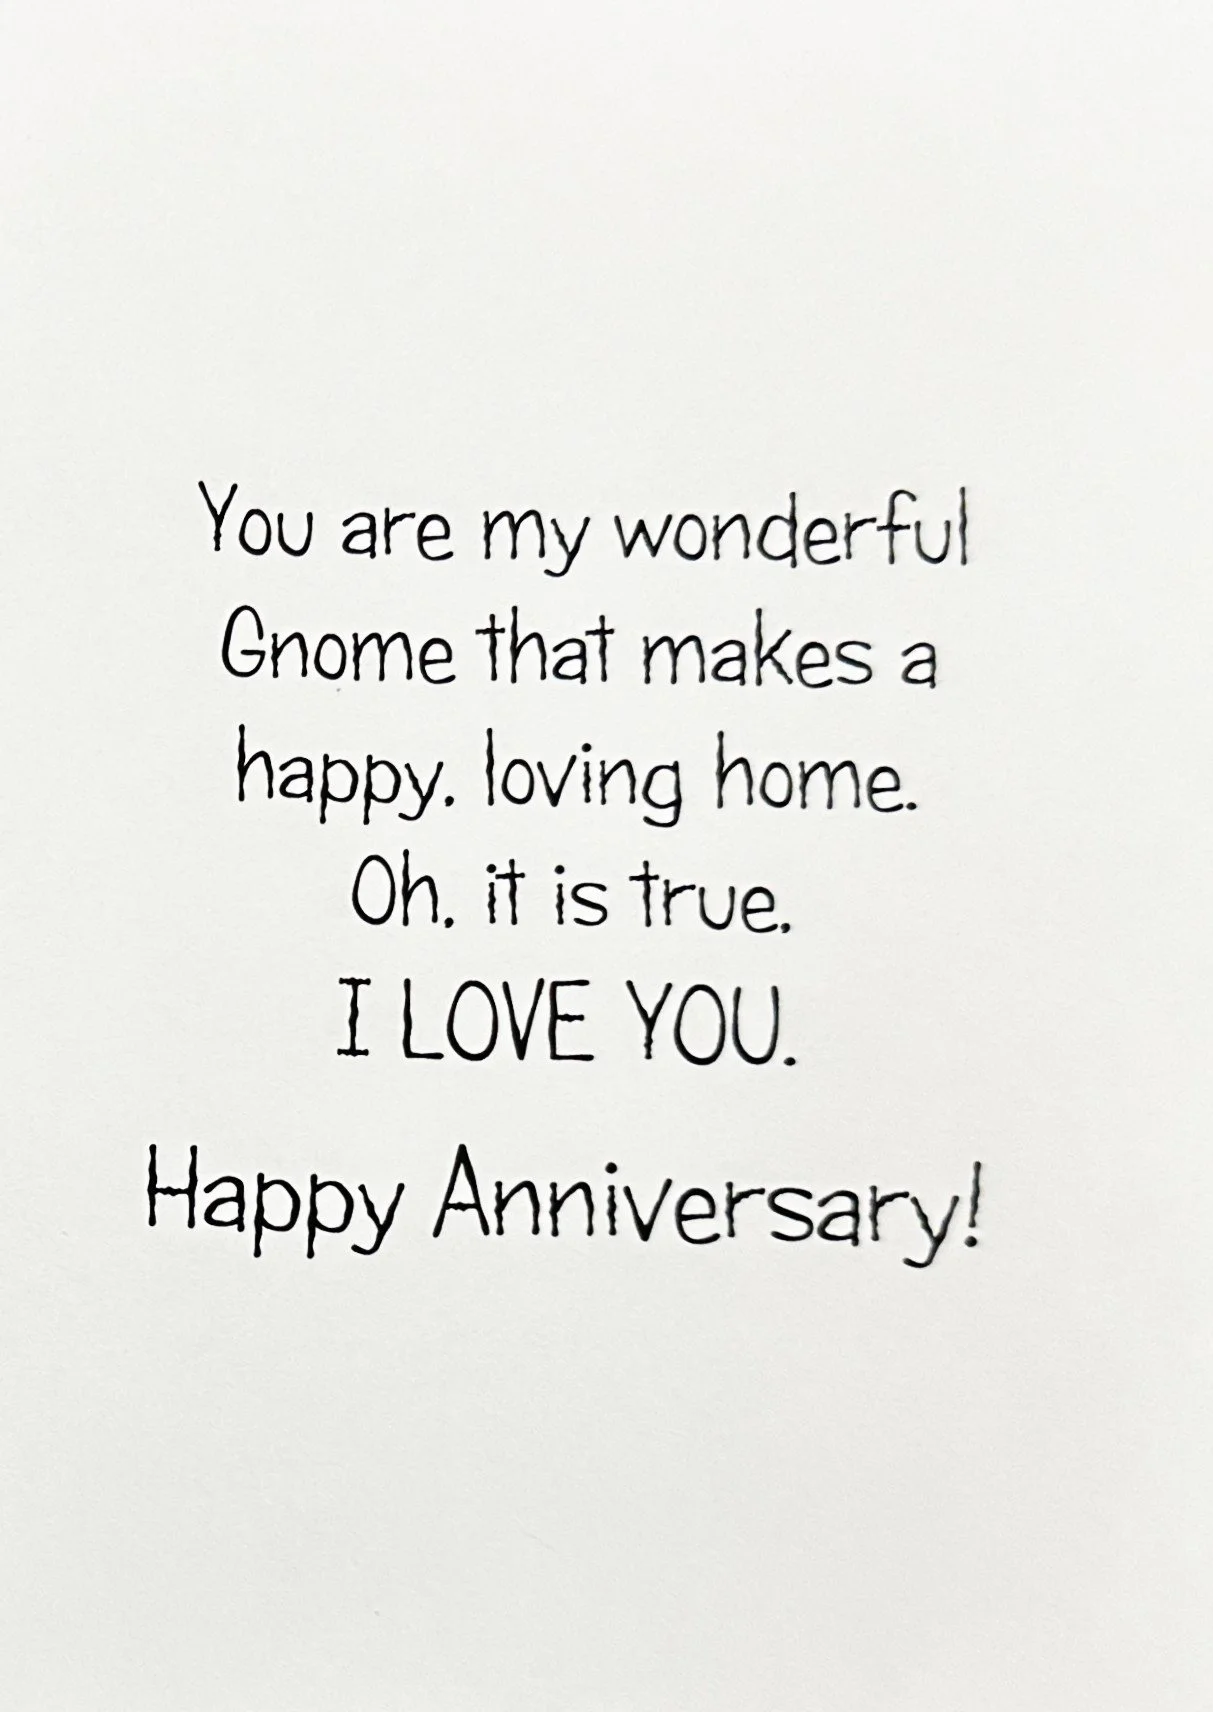 You are my wonderful
Gnome that makes a
happy, loving home.
Oh, it is true,
I LOVE YOU.
Happy Anniversary!